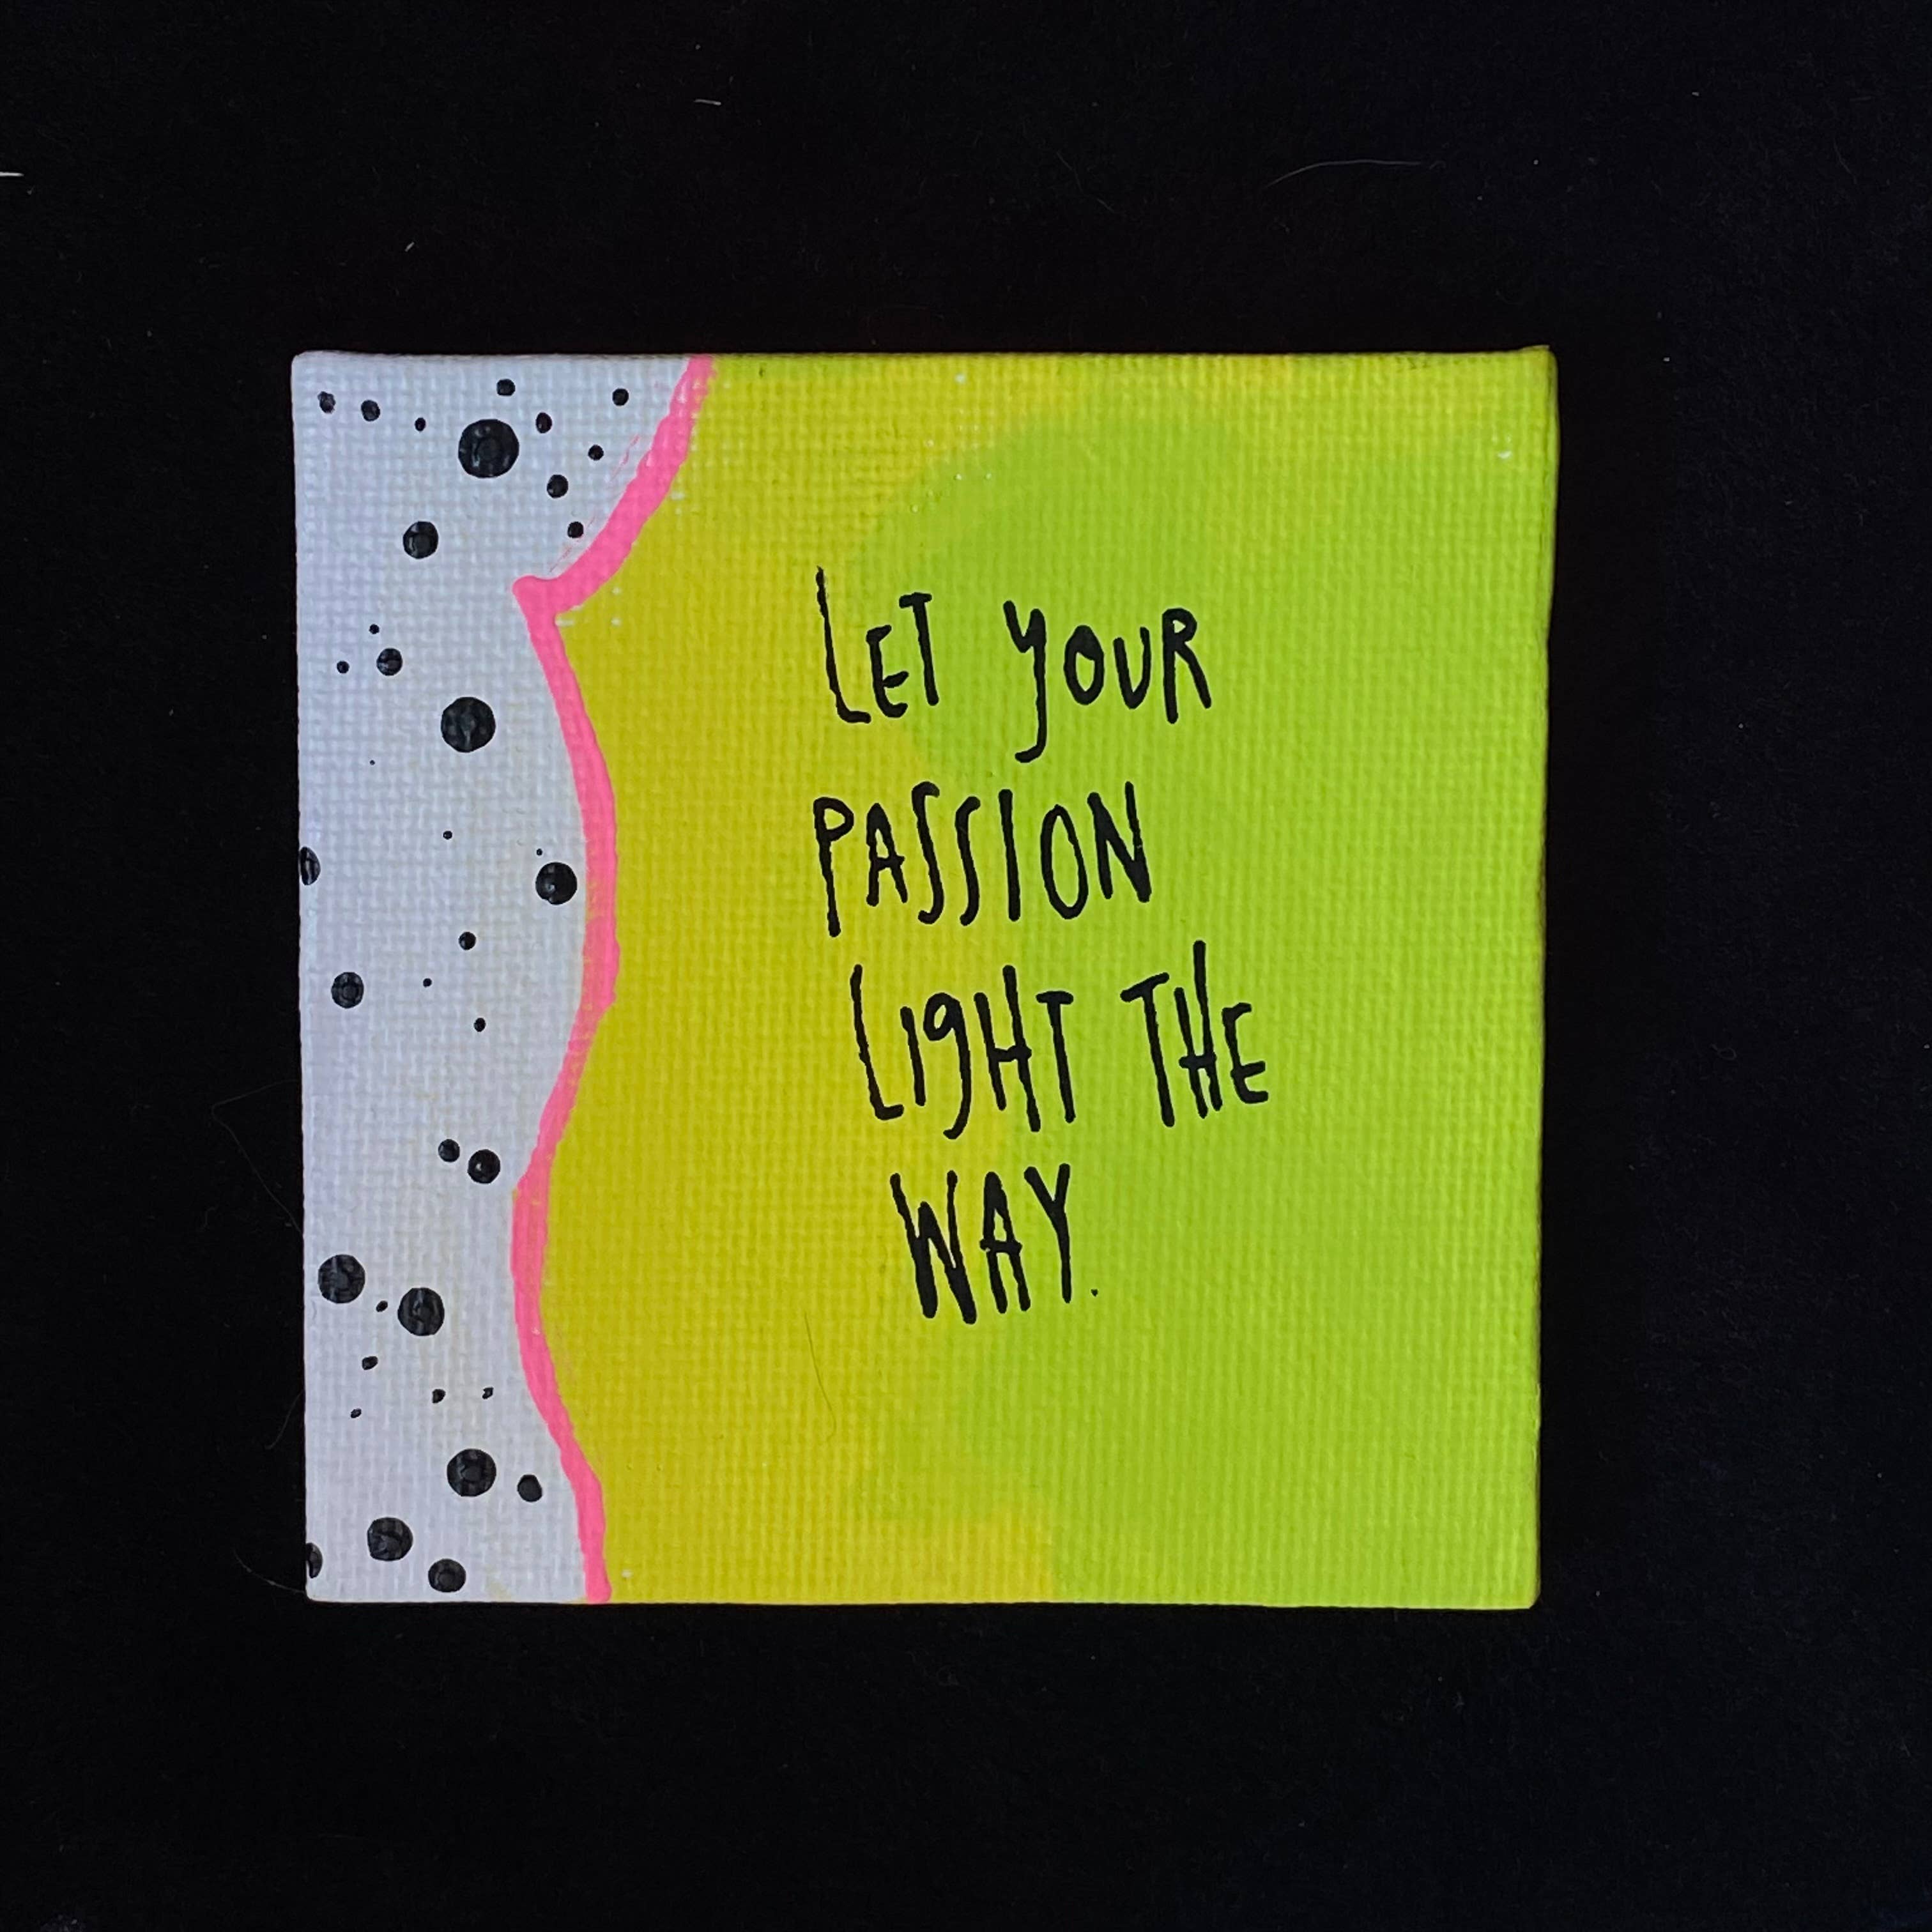 LET YOUR
PASSION
LIGHT THE
WAY.